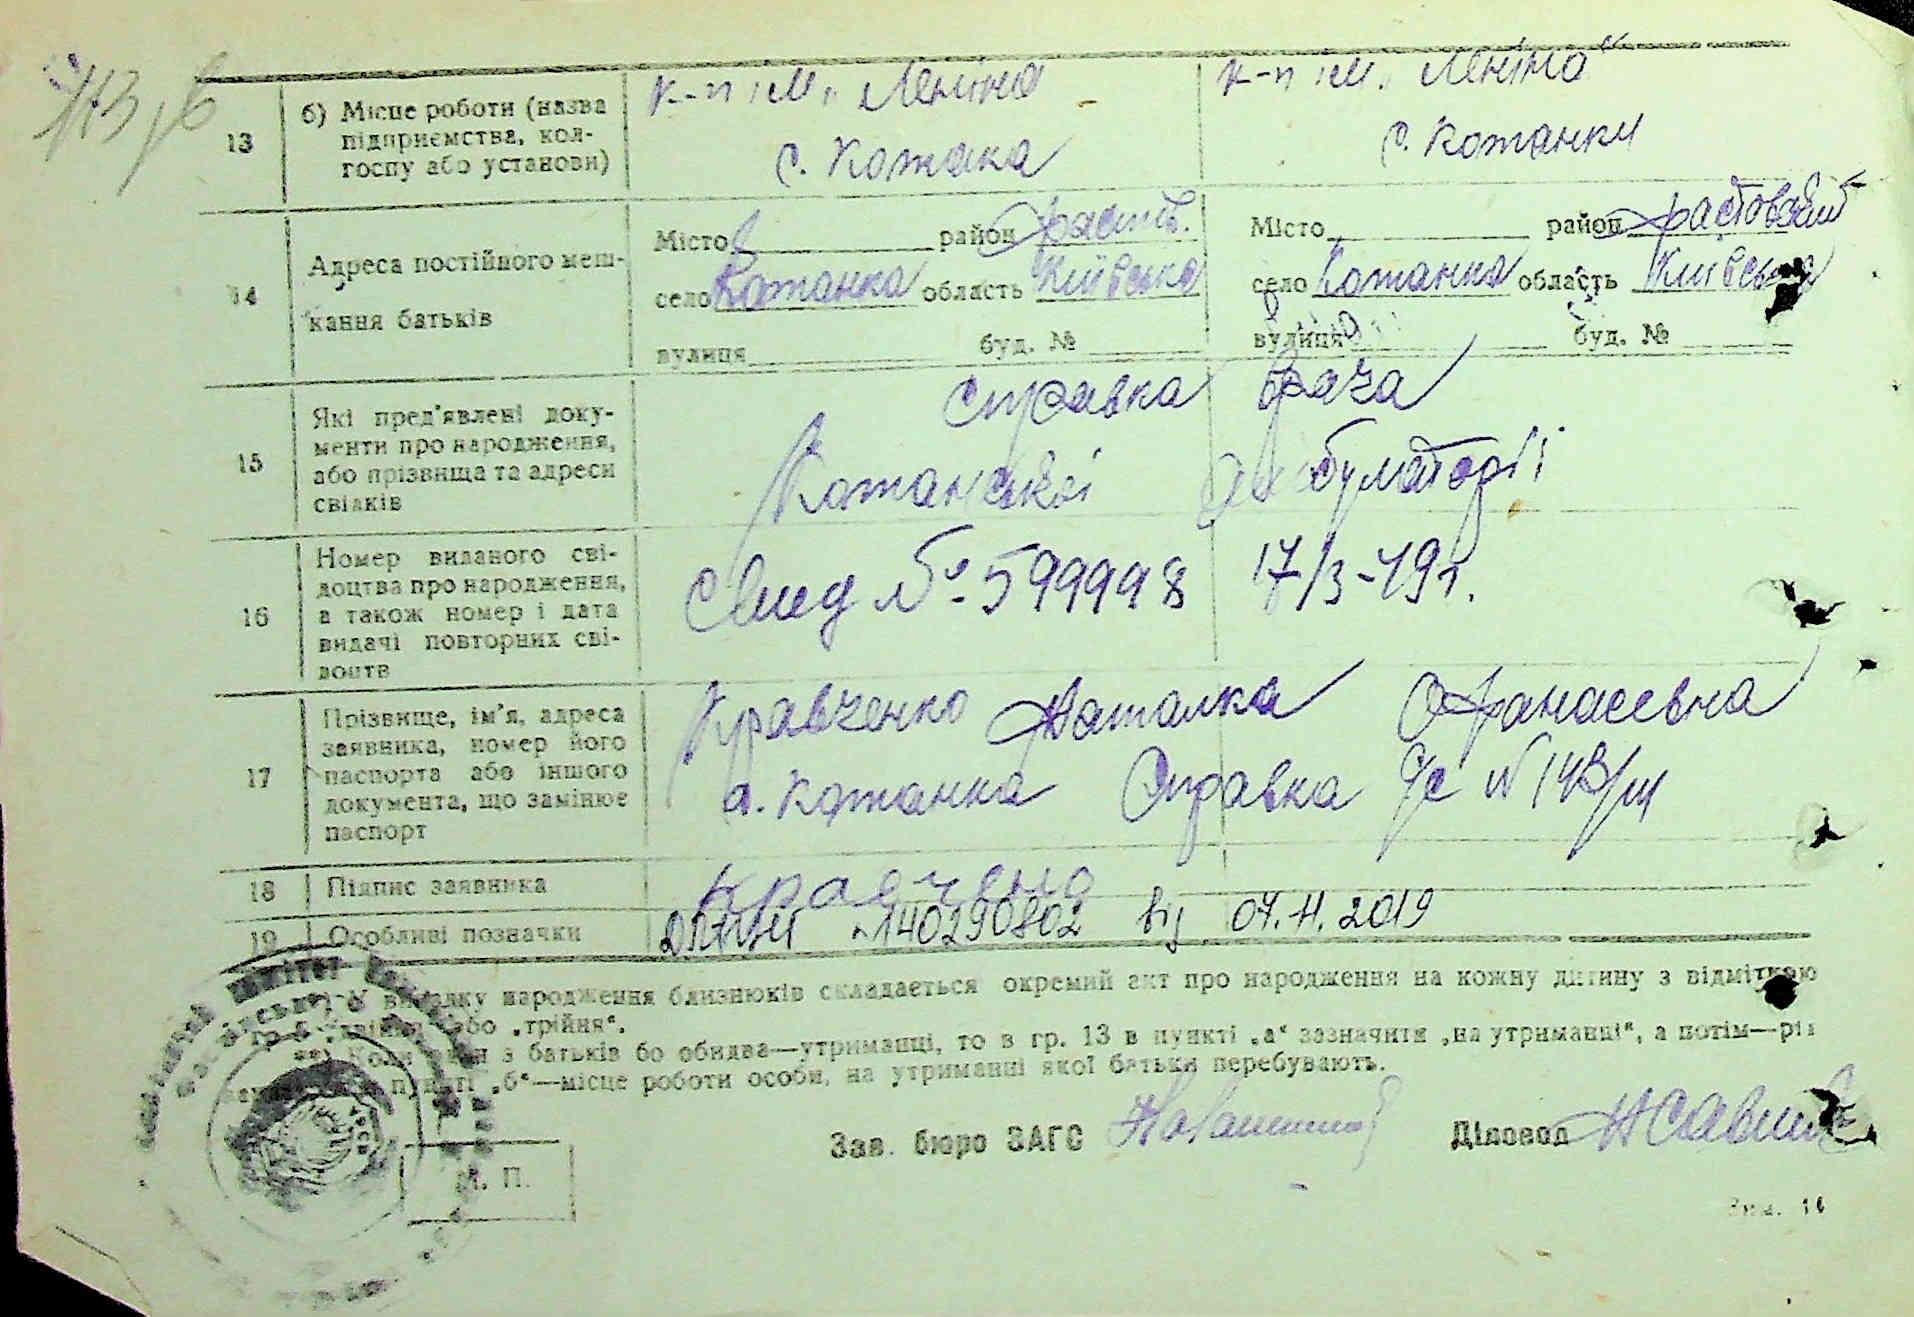 113
13 б) Місце роботи (назва підприємства, колгоспу або установи)
к-п ім. Леніна
с. Кожанка
к-п ім. Леніна
с. Кожанки
14 Адреса постійного мешкання батьків
Місто район Фастів.
село Кожанка область Київська
вулиця буд. №
Місто район Фастовський
село Кожанка область Київська
вулиця буд. №
15 Які пред'явлені документи про народження, або прізвища та адреси свідків
справка врача
Кожанської амбулаторії
16 Номер виданого свідоцтва про народження, а також номер і дата видачі повторних свідоцтв
Свид № 599998 17/3-49г.
17 Прізвище, ім'я, адреса заявника, номер його паспорта або іншого документа, що замінює паспорт
Кравченко Наталка Офанасевна
с. Кожанка Справка с/с № 143/
18 Підпис заявника
19 Особливі позначки
140290802 від 07.11.2019
у випадку народження близнюків складається окремий акт про народження на кожну дитину з відміткою
гр. 6 або „трійня“.
Коли з батьків бо обидва—утриманці, то в гр. 13 в пункті „а“ зазначити „на утриманці“, а потім—рід
пункті „б“—місце роботи особи, на утриманні якої батьки перебувають.
Зав. бюро ЗАГС Діловод
М. П.